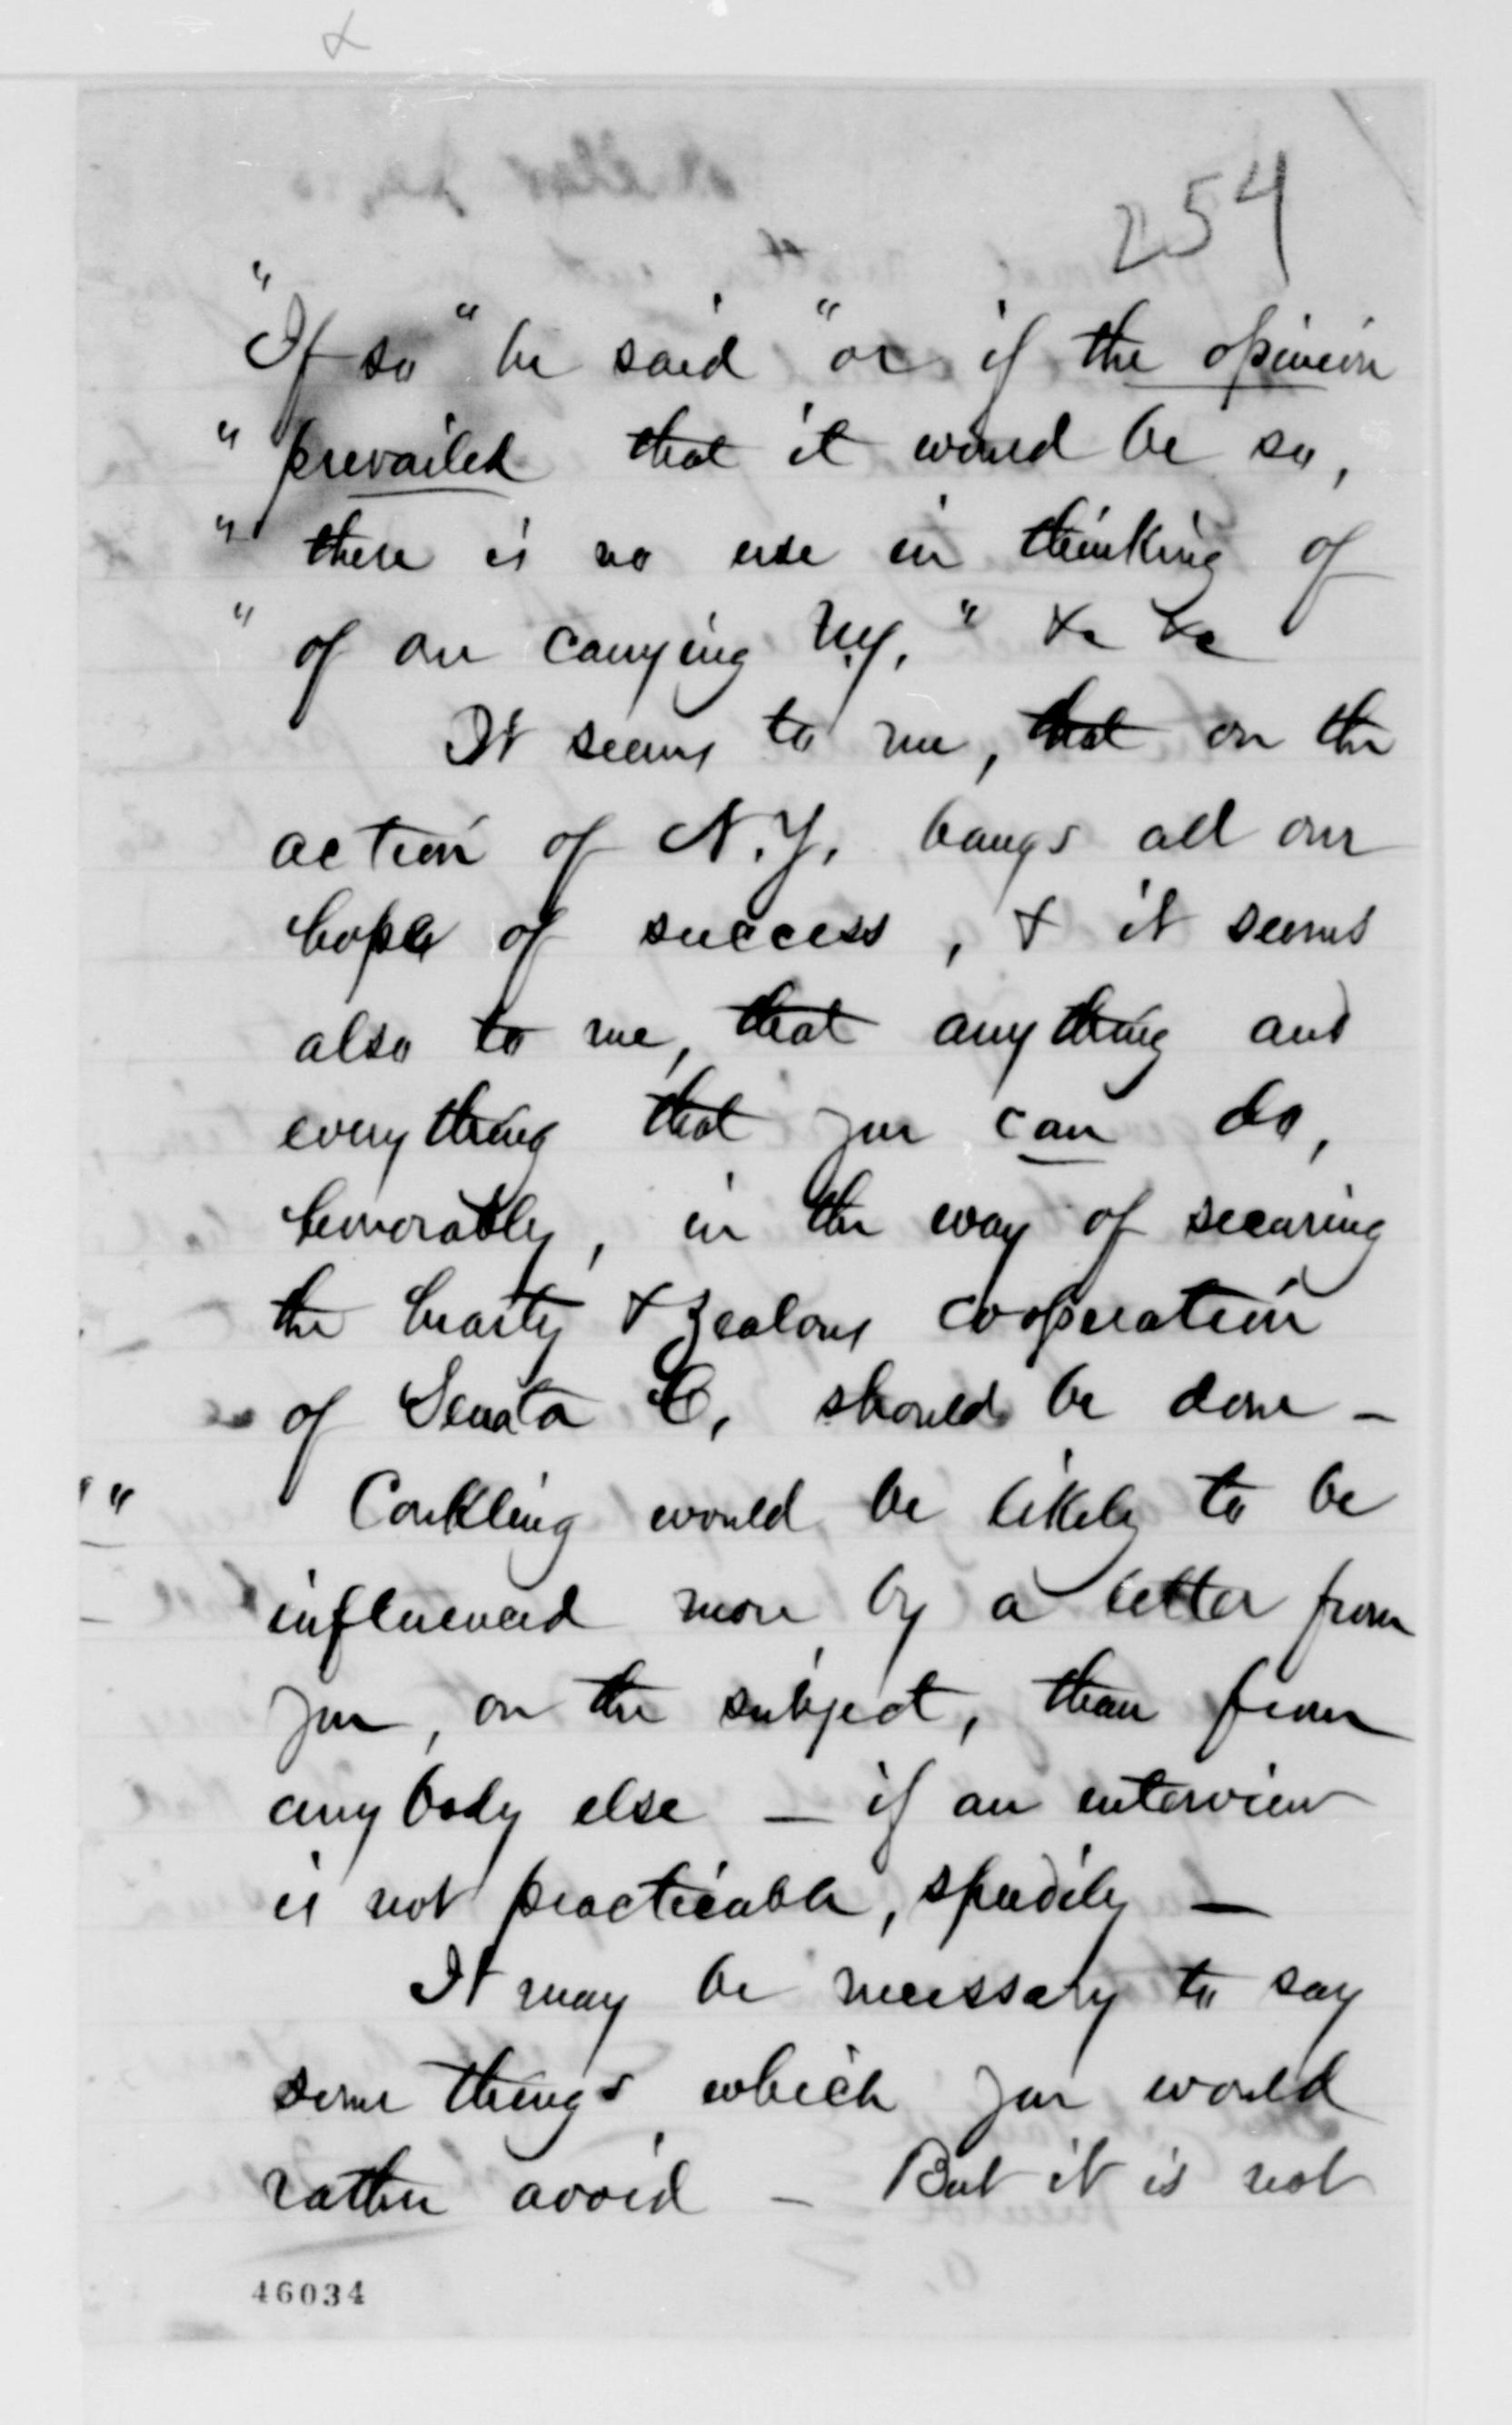 254
"If so" he said "or if the opinion
" prevailed that it would be so,
" there is no use in thinking of
" of our carrying N.Y." &c &c
It seems to me, that on the
action of N.Y. hangs all our
hope of success, & it seems
also to me, that anything and
everything that you can do,
honorably, in the way of securing
the hearty & zealous cooperation
of Senator C, should be done -
" Conkling would be likely to be
influenced more by a letter from
you, on the subject, than from
anybody else - if an interview
is not practicable, speedily -
It may be necessary to say
some things which you would
rather avoid - But it is not
46034